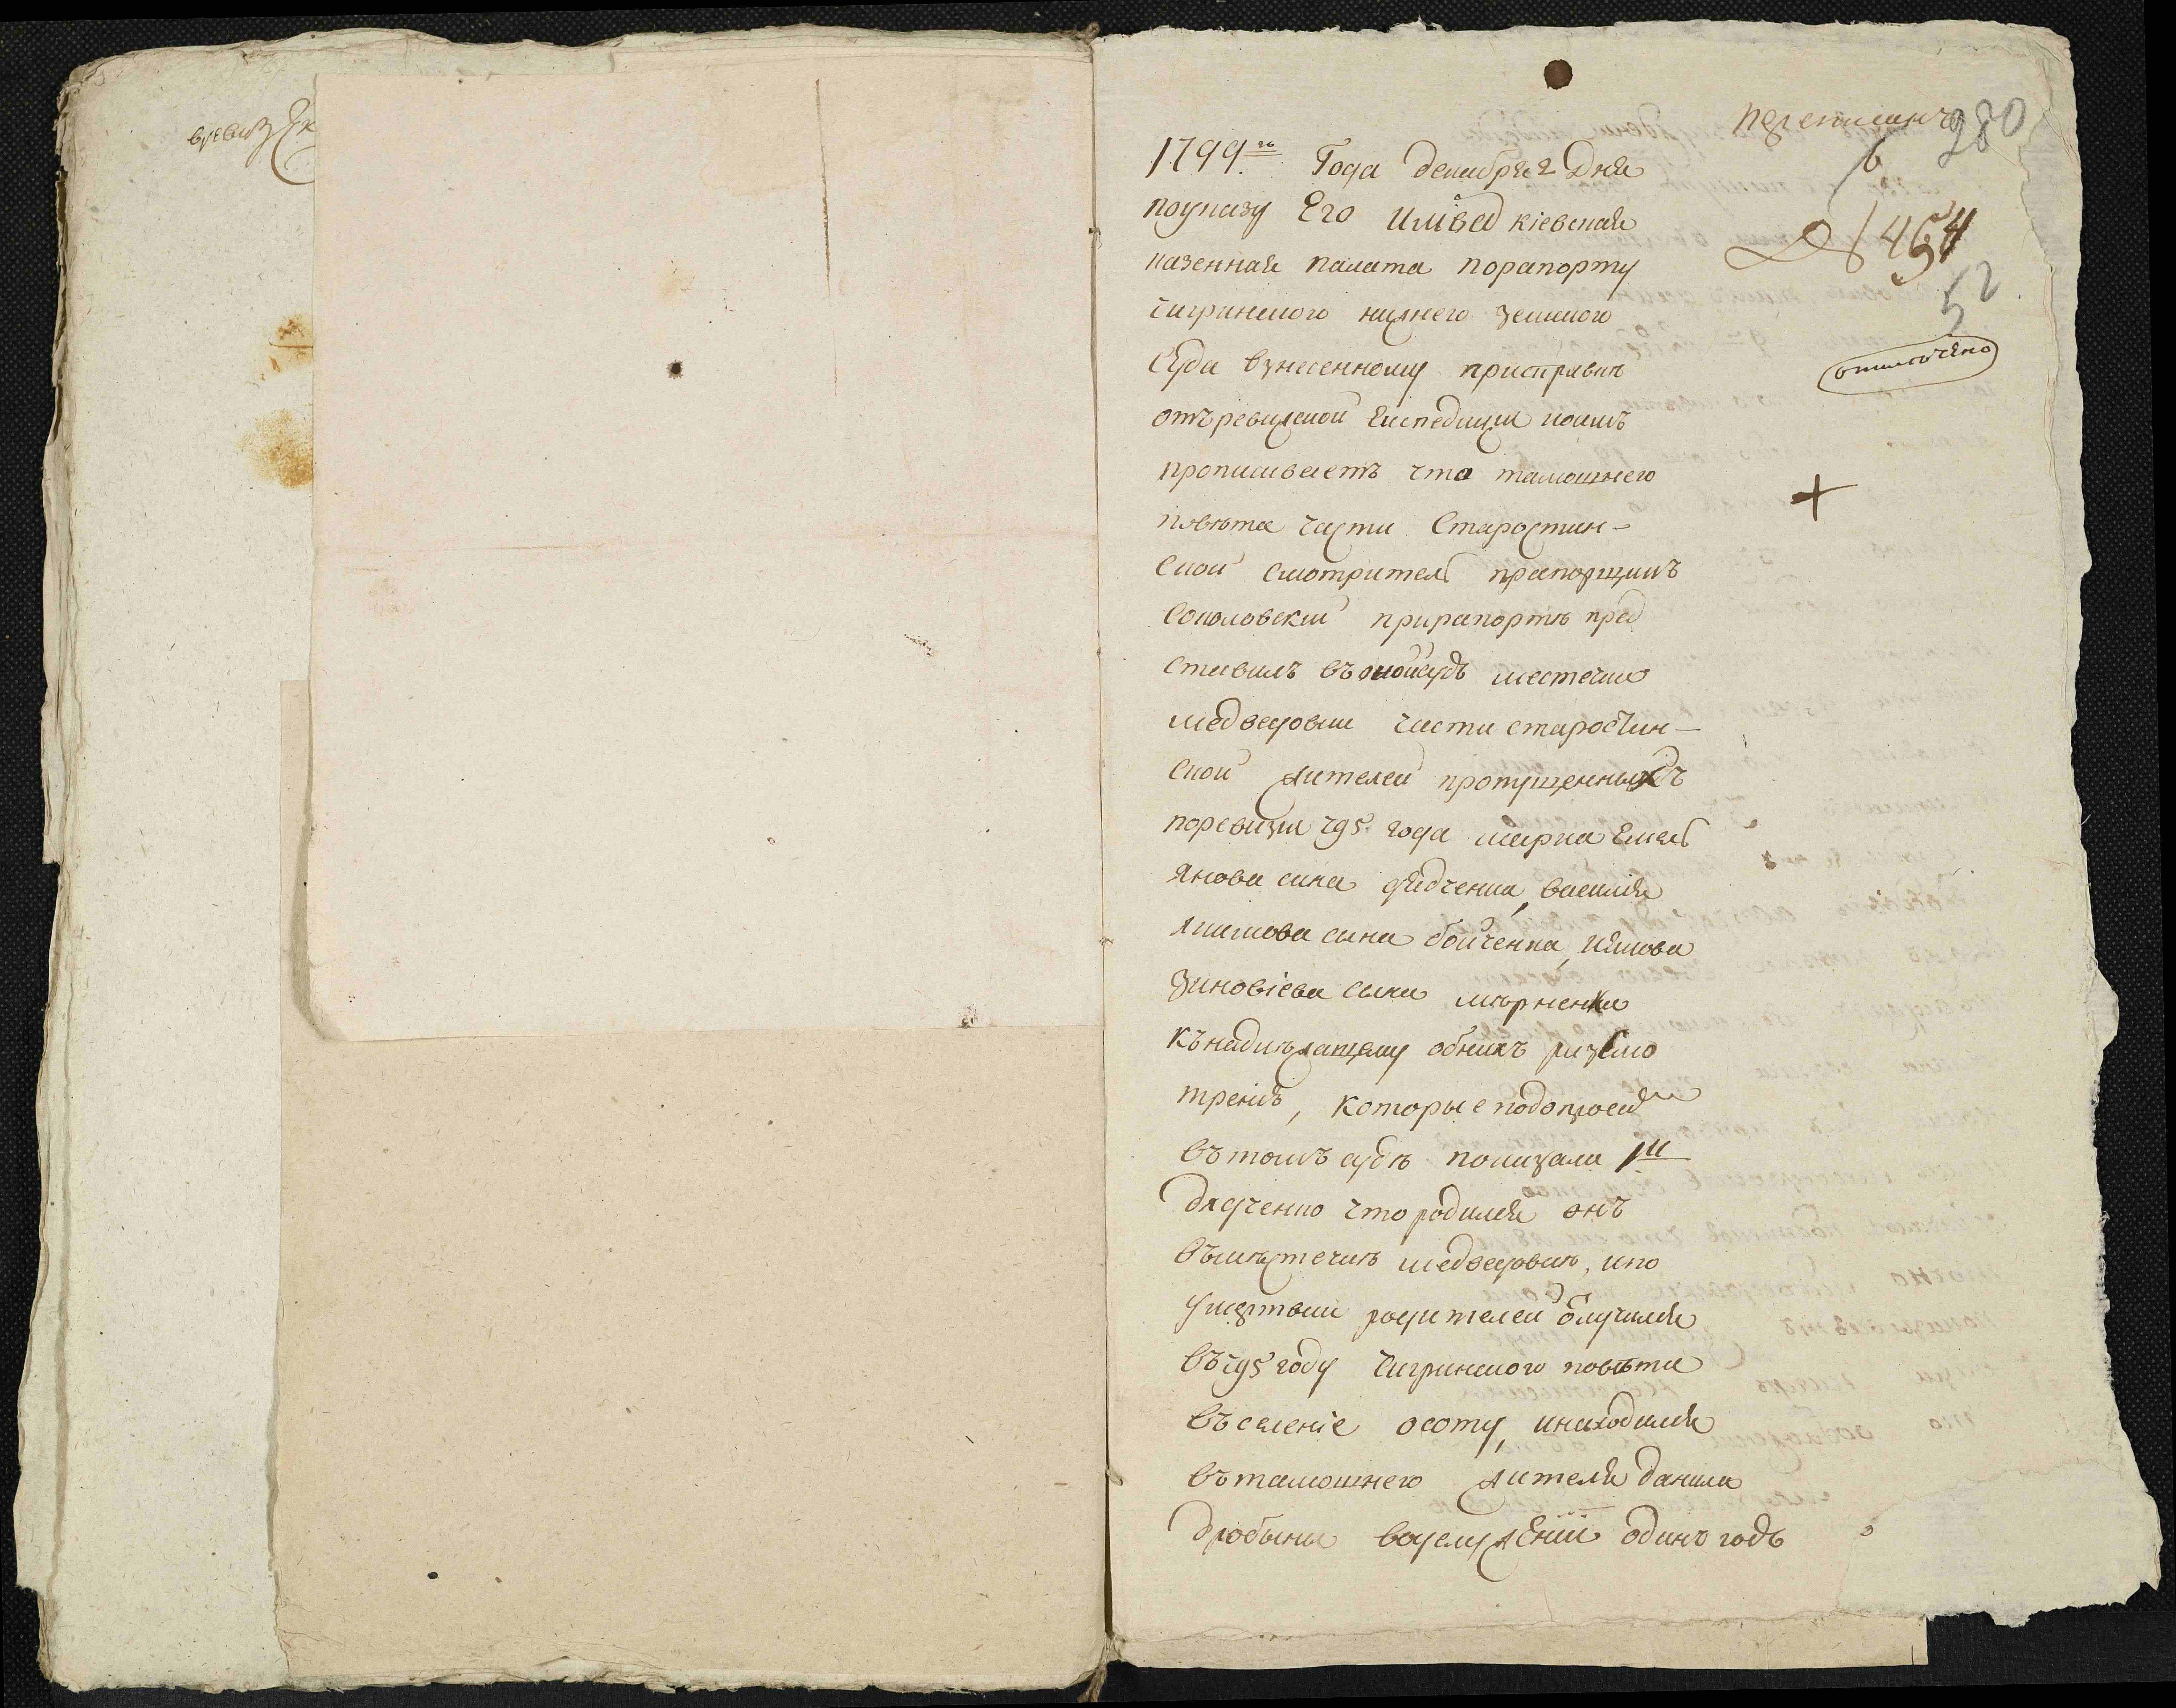 переписанъ
280
6
1799го. Года декабря 2 Дня
поуказу Его Имп Вел кіевская
№ 1464
54
казенная палата порапорту
52
чигринского нижнего земского
Суда взнесенному присправки
отмечено
отъревизской Експедиции коимъ
прописиваетъ что тамошнего
повѣта части Старостин-
ской смотритель прапорщикъ
Соколовский прирапортѣ пред
ставилъ въ онойсудъ местечка
медведовки части старостин-
ской жителей пропущенныхъ
поревизии 795 года марка Емел
янова сина дядченка, василия
якимова сина бойченка, иякова
Зиновіева сина мирненка
къ надлежащему обнихъ разсмо
трению, которые подопросам
въ томъ судѣ показали 1й
Дядченко что родился онъ
въместечкѣ медведовкѣ, ипо
умертвии родителей отлучился
въ 795 году Чигринского повѣта
въ селеніе осоту, инаходился
въ тамошнего жителя данила
дробина вуслужении одинъ годъ